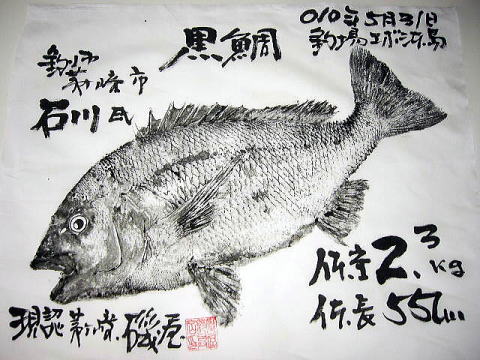 010年5月31日
釣場 エボシ岩島
黒鯛
釣師
茅ヶ崎市
石川氏
体重 2.3kg
体長 55cm
現認 茅ヶ崎 磯屋